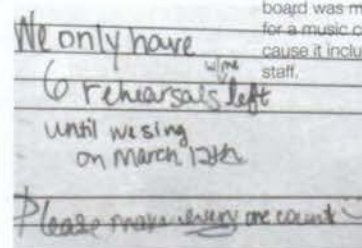 board was m
for a music c
cause it inclu
staff.
We only have
w/me
6 rehearsals left
until we sing
on March 12th
Please make every one count